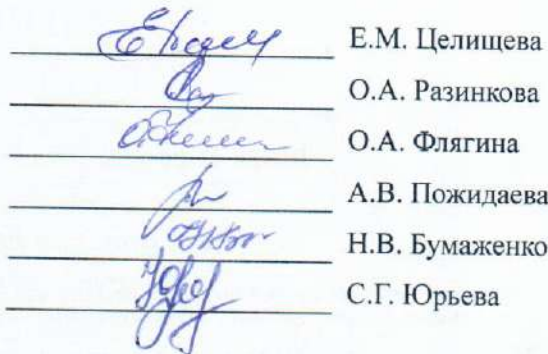 Е.М. Целищева
О.А. Разинкова
О.А. Флягина
А.В. Пожидаева
Н.В. Бумаженко
С.Г. Юрьева